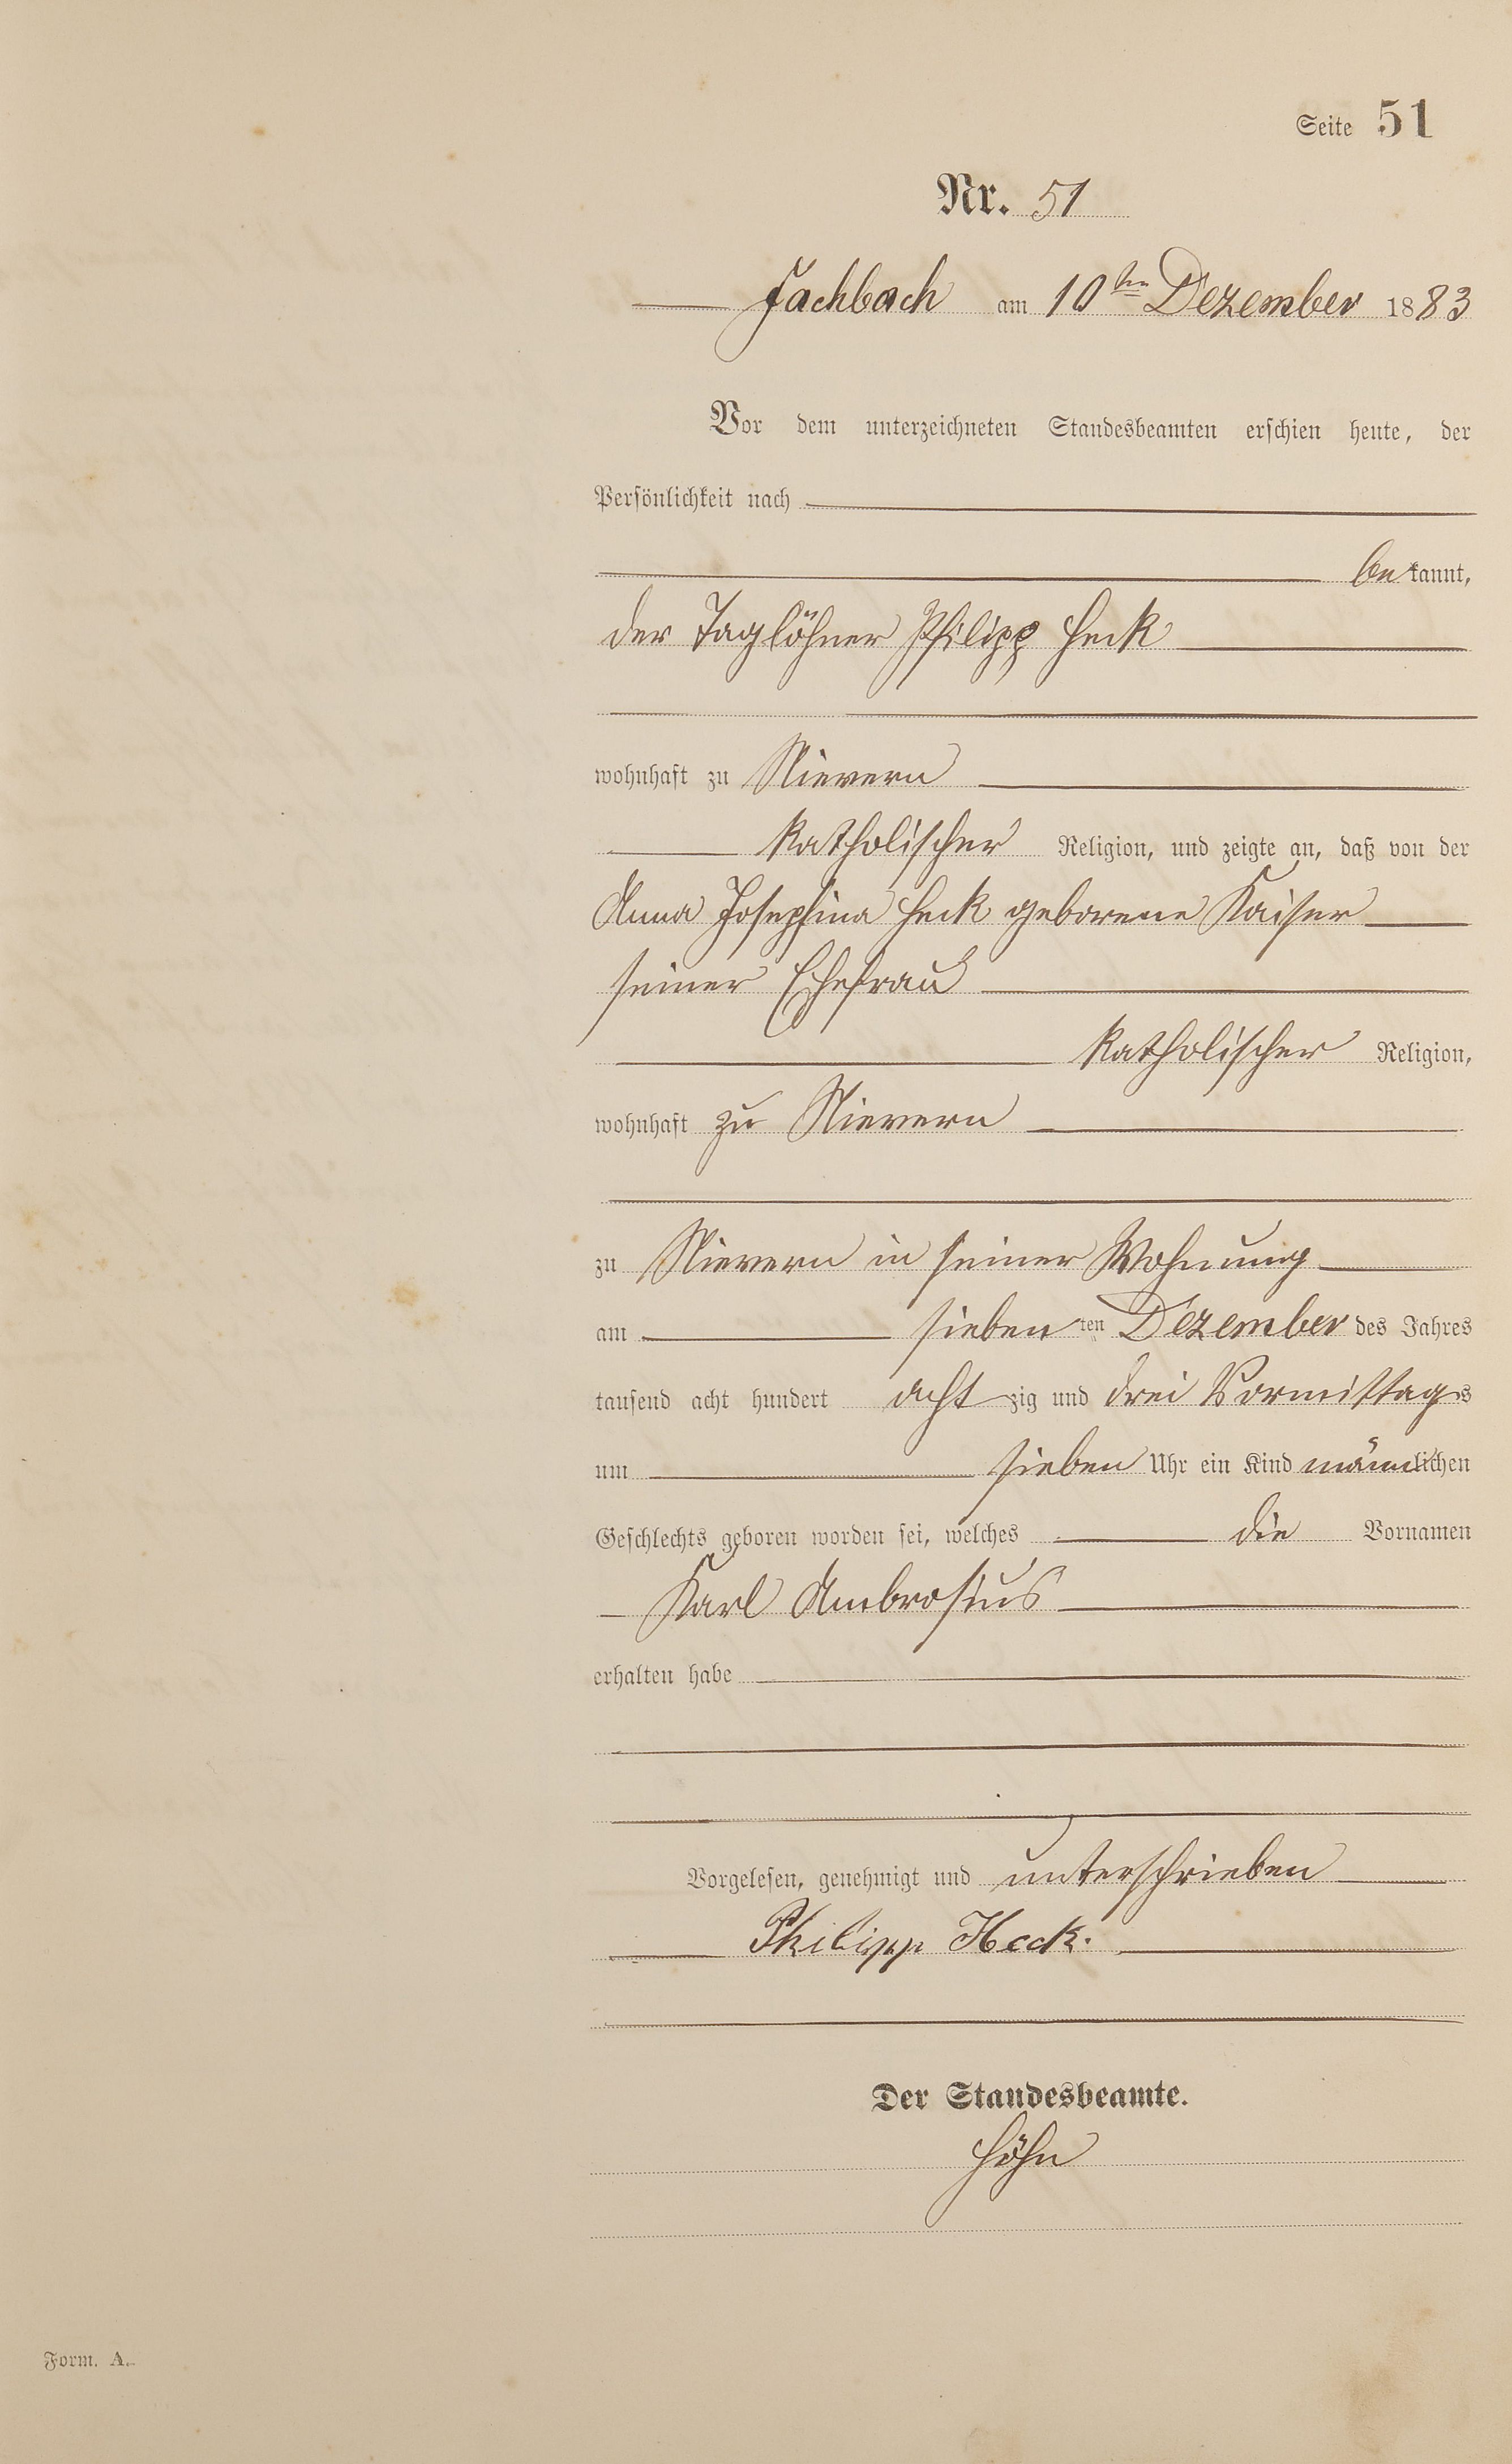 Seite 51
Nr. 51
Fachbach am 10ten Dezember 1883
Vor dem unterzeichneten Standesbeamten erschien heute, der
Persönlichkeit nach
bekannt,
der Taglöhner Philipp Heck
wohnhaft zu Nievern
katholischer Religion, und zeigte an, daß von der
Anna Josephina Heck geborene Kaiser
seiner Ehefrau
katholischer Religion,
wohnhaft zu Nievern
zu Nievern in seiner Wohnung
am siebenten Dezember des Jahres
tausend acht hundert achtzig und drei Vormittags
um sieben Uhr ein Kind männlichen
Geschlechts geboren worden sei, welches die Vornamen
Karl Ambrosius
erhalten habe
Vorgelesen, genehmigt und unterschrieben
Philipp Heck.
Der Standesbeamte.
Höhn
Form. A.